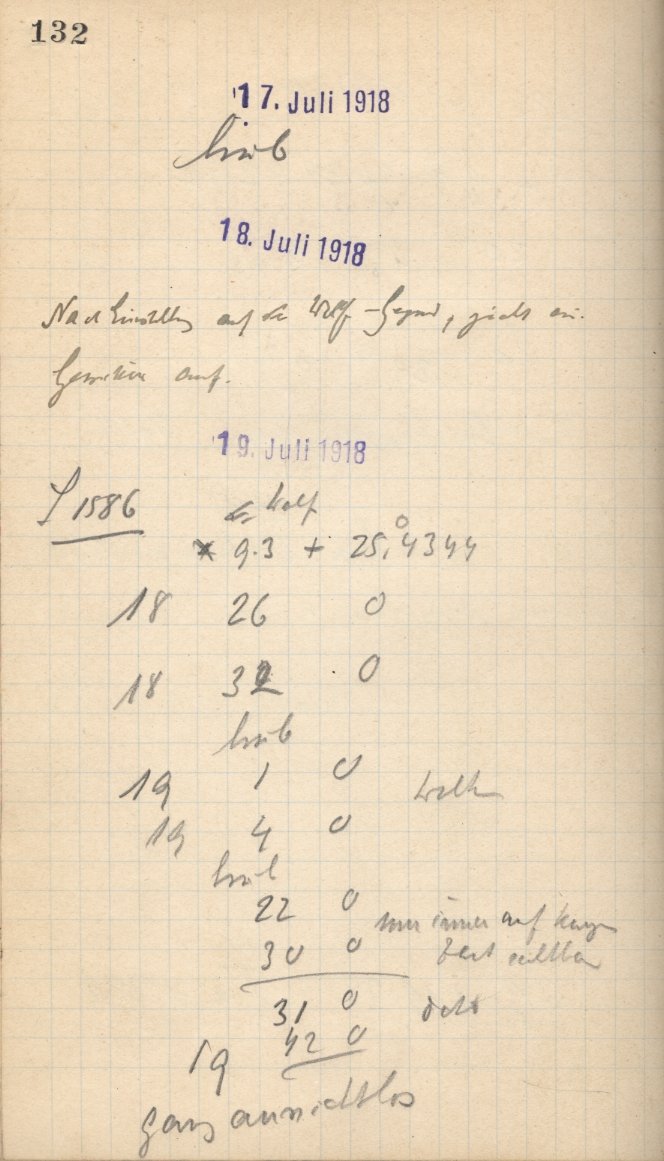 132
17. Juli 1918
trüb
18. Juli 1918
Nach Einstellung auf die Wolf-Gegend, zieht ein
Gewitter auf.
19. Juli 1918
P 1586
Wolf
9.3 + 25,°4344
18 26 0
18 32 0
trüb
19 1 0 Wolken
19 4 0
trüb
22 0 nur immer auf kurze
30 0 Zeit sichtbar
31 0 dito
19 42 0
ganz aussichtslos